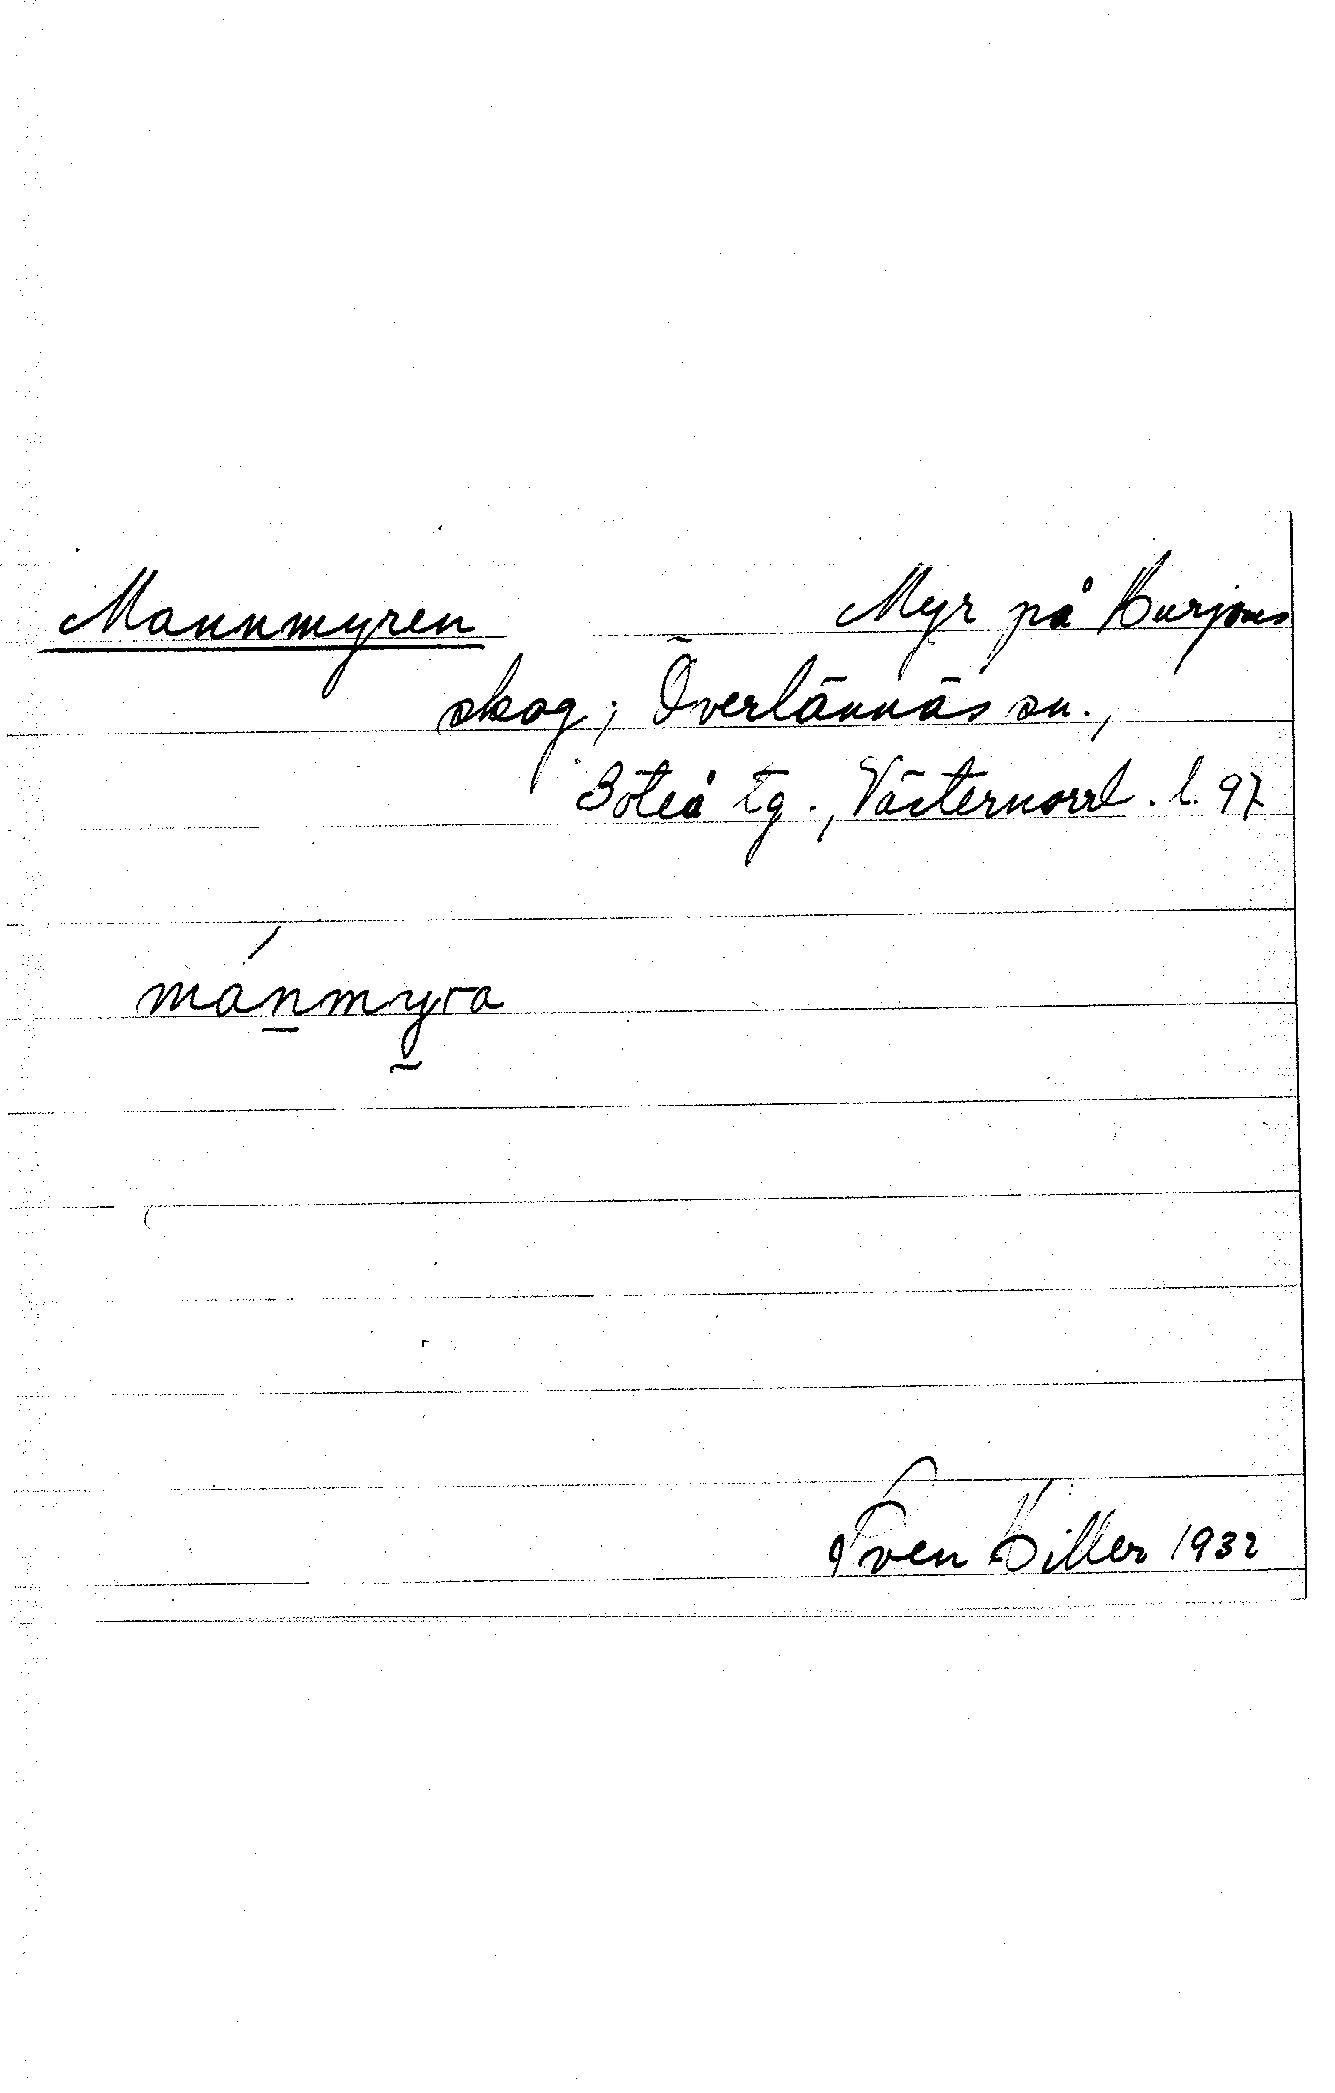 Mannmyren Myr på Kurjons
skog; Överlännäs sn.,
Boteå tg., Västernorrl. l. 97
mánmyra
Sven Killer 1932